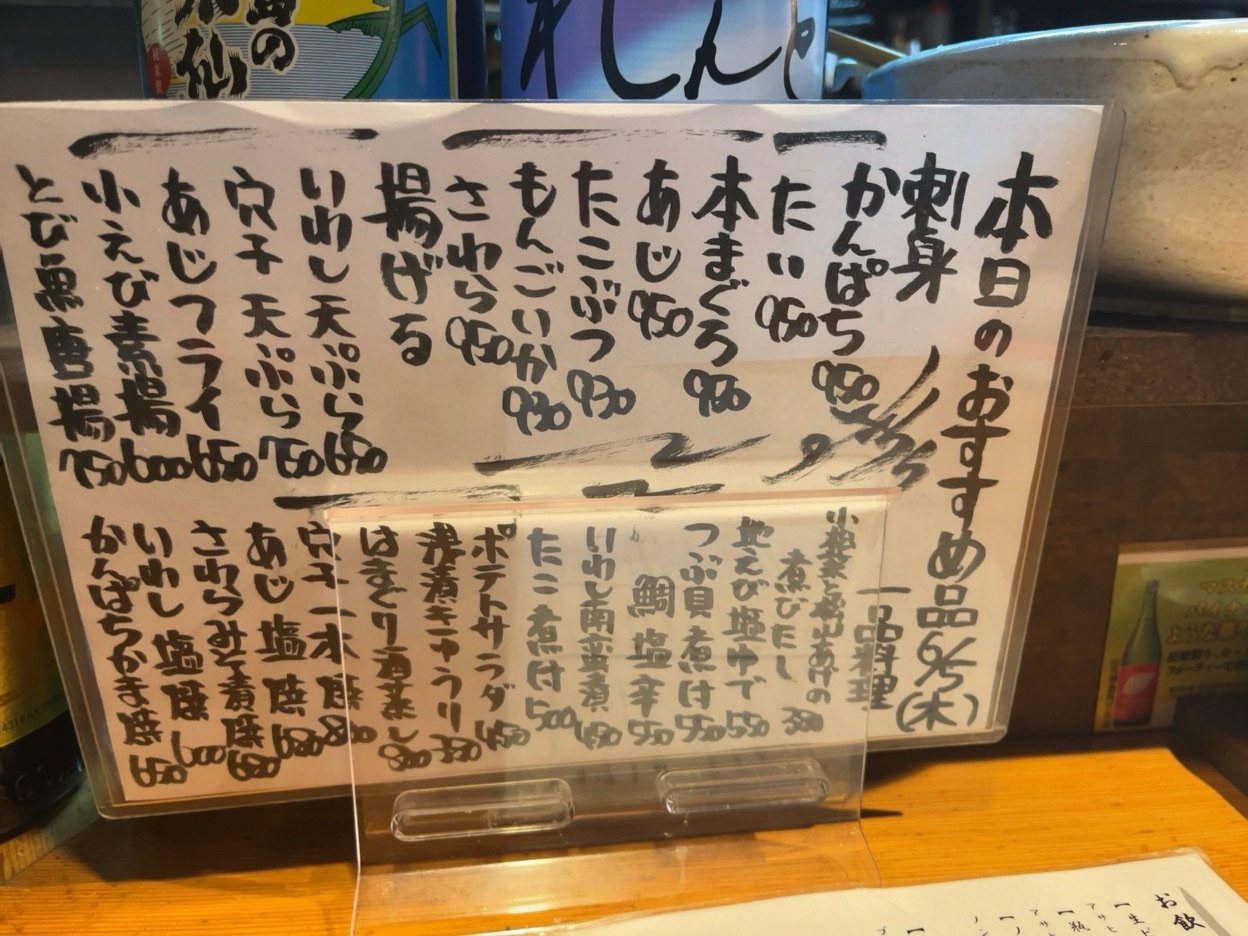 本日のおすすめ品 6/5(木)
刺身
かんぱち 950
たい 950
本まぐろ 980
あじ 950
たこぶつ 930
もんごいか 930
さわら 950
揚げる
いわし天ぷら 650
穴子天ぷら 750
あじフライ 650
小えび素揚 600
とび魚唐揚 750
一品料理
煮びたし
地えび塩ゆで 550
つぶ貝煮付 550
鯛塩辛 550
いわし南蛮煮 450
たこ煮付 500
ポテトサラダ 450
浅漬きゅうり
はまぐり酒蒸し 800
穴子一本焼 800
あじ塩焼
さわらみそ漬焼
いわし塩焼 600
かんぱちかま焼 650
れんと
お飲